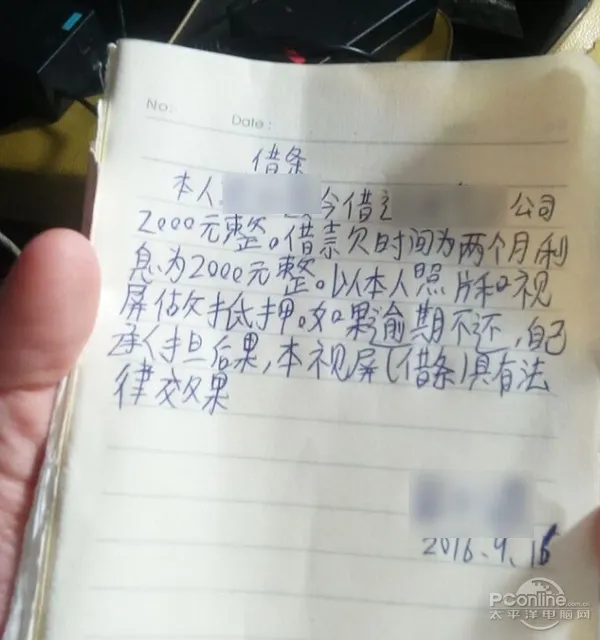 No:
Date:
借条
本人 今借 公司
2000元整。借款时间为两个月利
息为2000元整。以本人照片和视
屏作抵押。如果逾期不还,自己
承担后果,本视屏(借条)具有法
律效果
2016.9.16
PConline.com.cn
太平洋电脑网